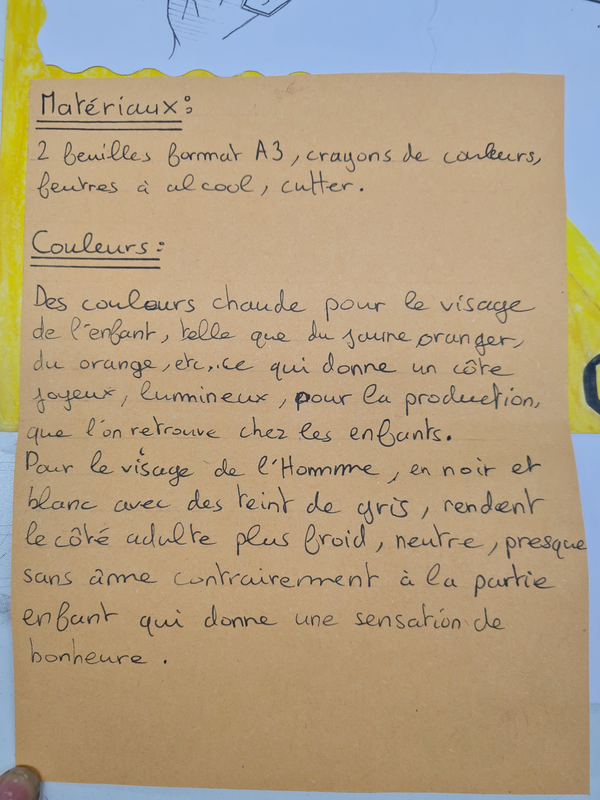 Matériaux :
2 feuilles format A3, crayons de couleurs,
feutres à alcool, cutter.
Couleurs :
Des couleurs chaude pour le visage
de l'enfant, telle que du jaune oranger,
du orange, etc,.ce qui donne un côte
joyeux, lumineux, pour la production,
que l'on retrouve chez les enfants.
Pour le visage de l'Homme, en noir et
blanc avec des teint de gris, rendent
le côté adulte plus froid, neutre, presque
sans âme contrairement à la partie
enfant qui donne une sensation de
bonheure.